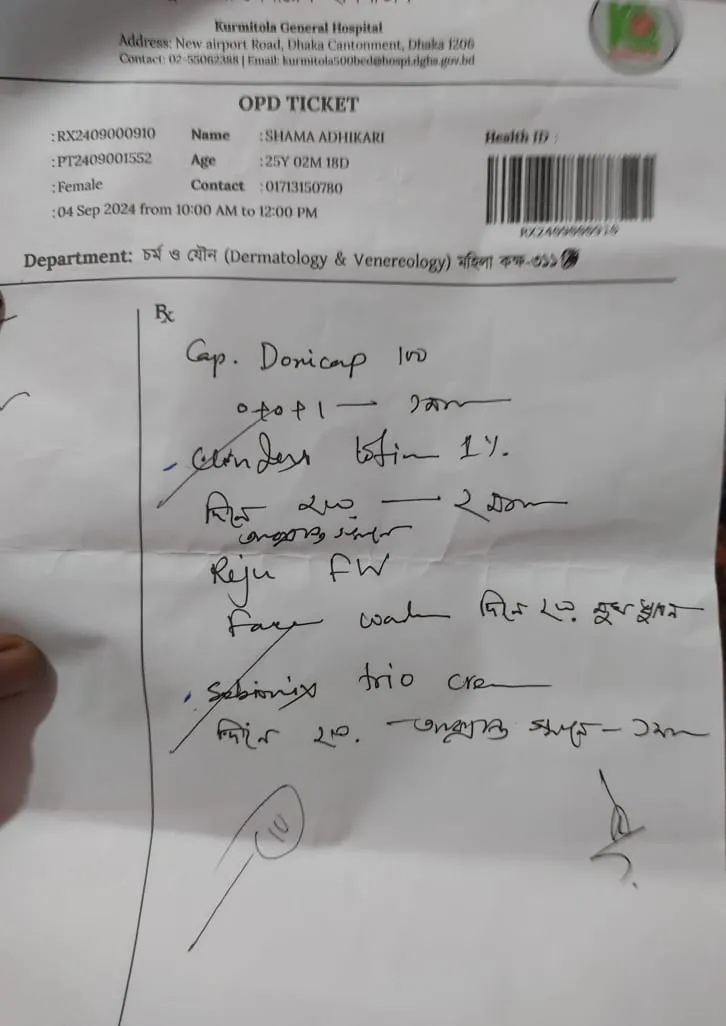 Kurmitola General Hospital
Address: New airport Road, Dhaka Cantonment, Dhaka 1206
Contact: 02-55062388 | Email: kurmitola500bed@hospi.dghs.gov.bd
OPD TICKET
:RX2409000910 Name :SHAMA ADHIKARI Health ID :
:PT2409001552 Age :25Y 02M 18D
:Female Contact :01713150780
:04 Sep 2024 from 10:00 AM to 12:00 PM
RX2409000910
Department: চর্ম ও যৌন (Dermatology & Venereology) মহিলা কক্ষ-৩১১
Rx
Cap. Doxicap 100
0+0+1 — ১ মাস
lotion 1%.
দিনে ২বার — ২ মাস
আক্রান্ত স্থানে
Reju FW
Face wash দিনে ২বার মুখ ধুবেন
trio cream
দিনে ২বার. আক্রান্ত স্থানে - ১ মাস